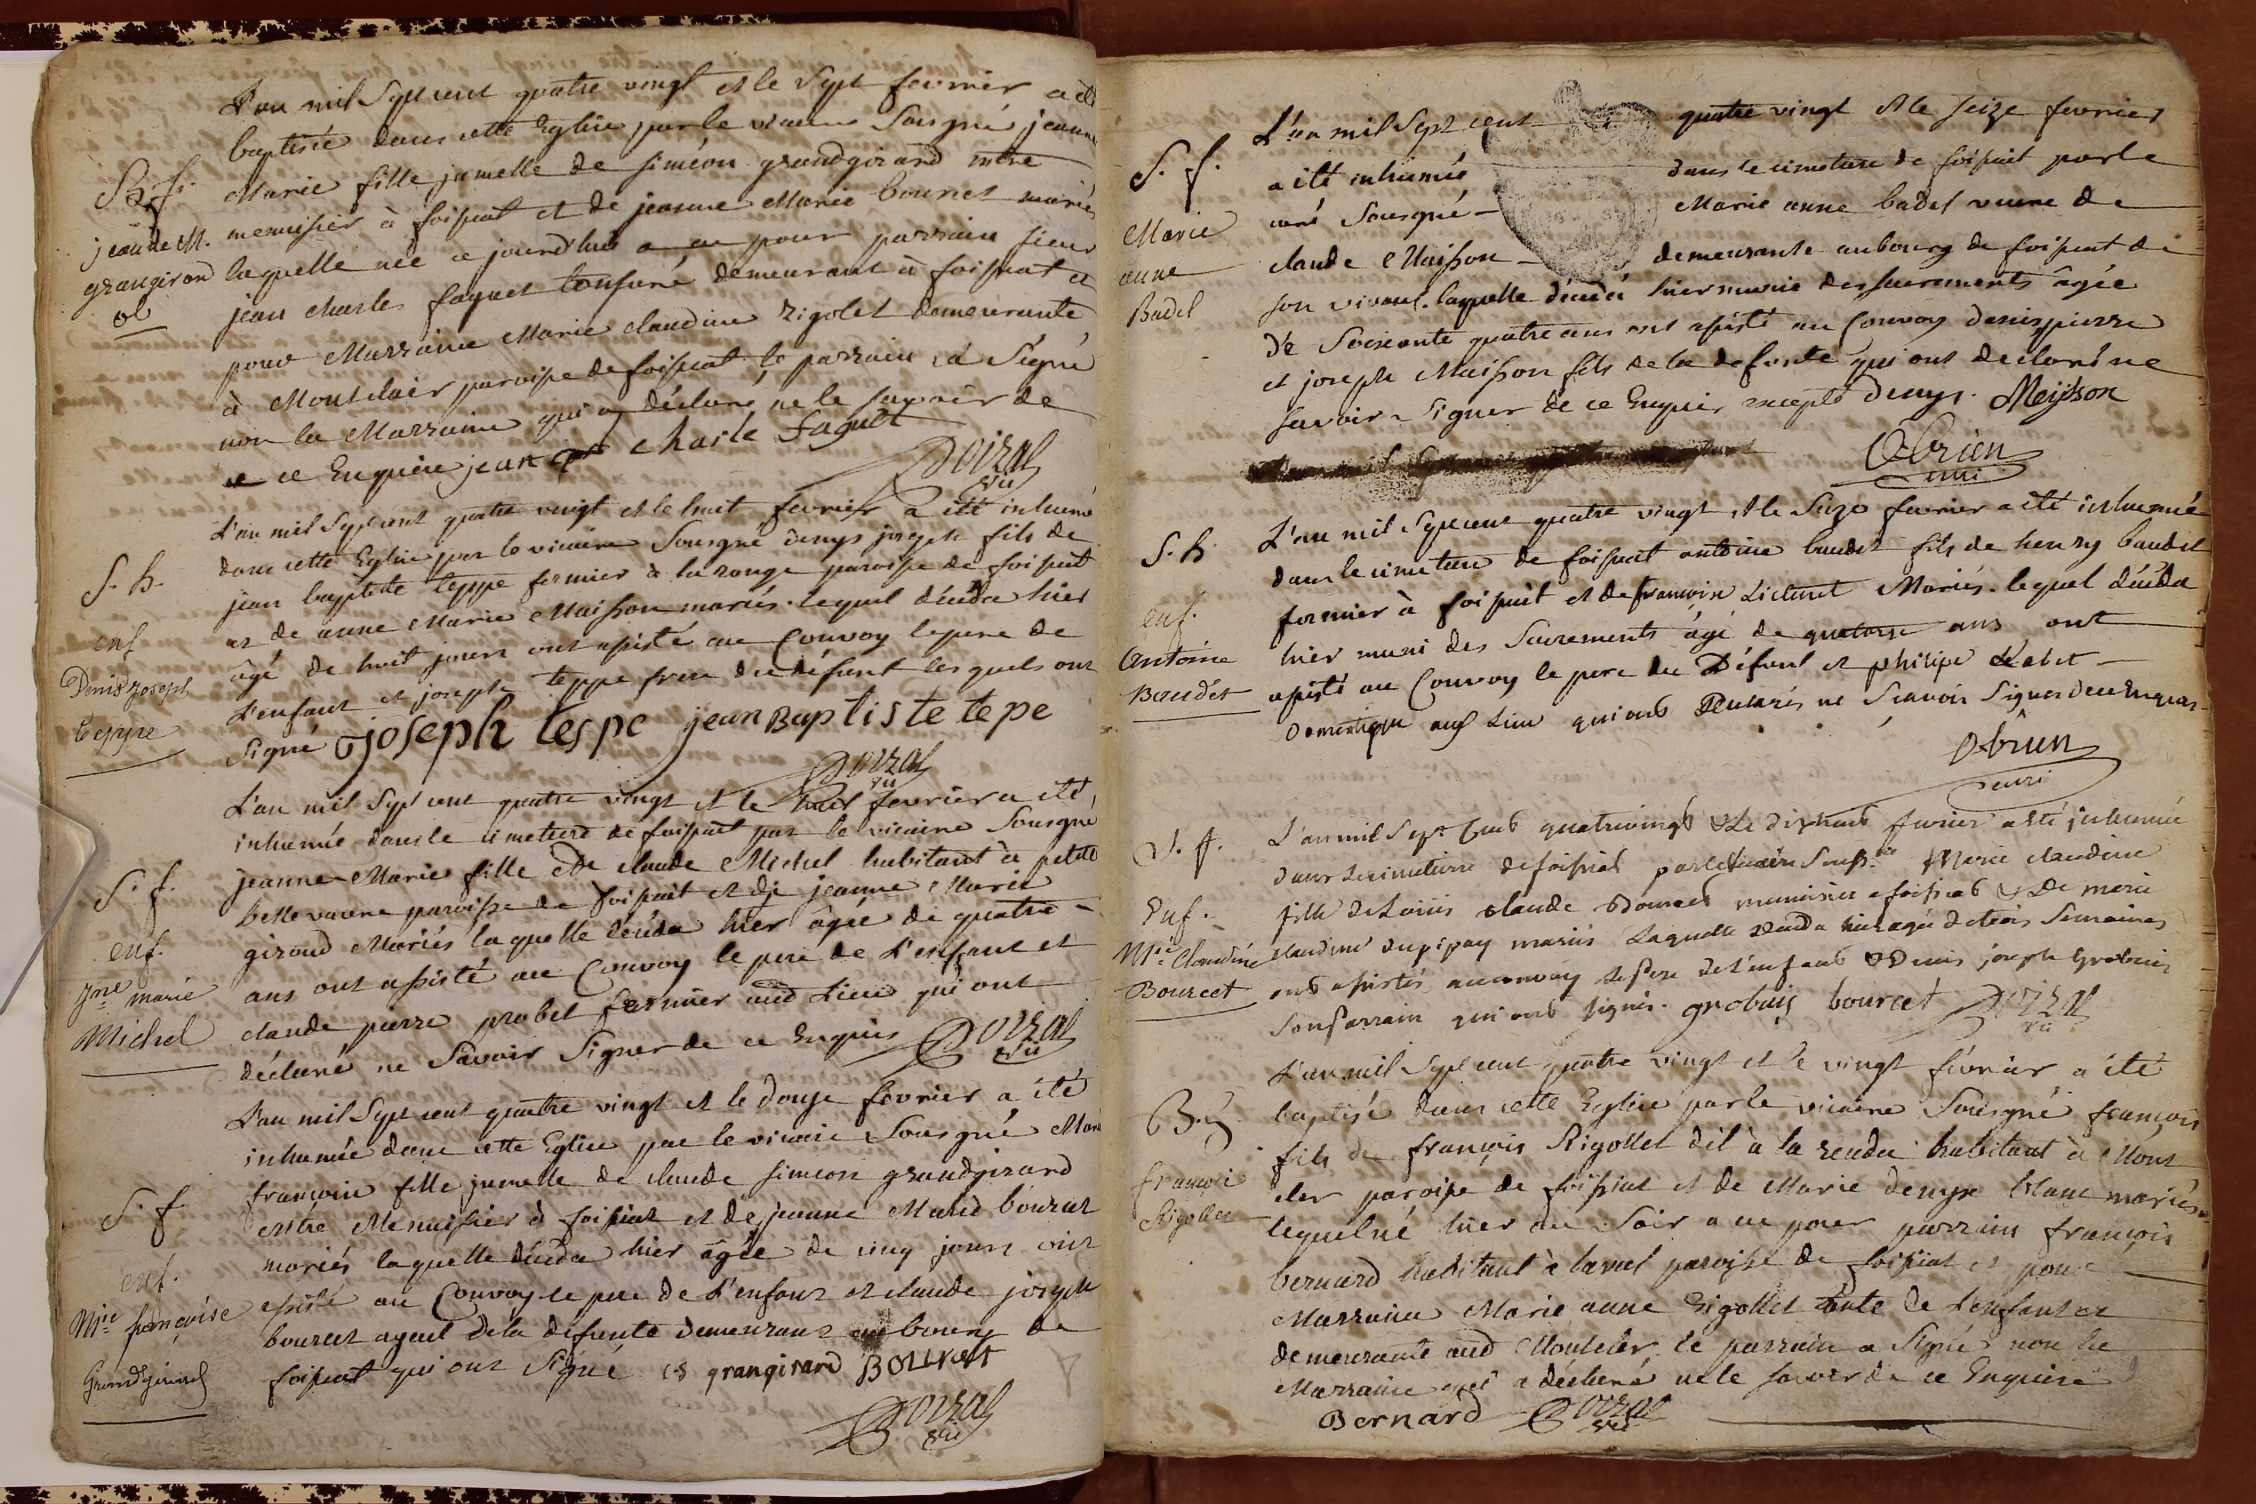 L'an mil Sept cent quatre vingt et le Sept fevrier a été
baptisée dans cette Eglise par le vicaire Sousigné jeanne
B. f. Marie fille jumelle de siméon grandgirard mtre
jeanne M. menuisier à foissiat et de jeanne Marie bourcet mariés
grangirard laquelle née ce jourd'hui a eu pour parrain sieur
jean charles faguet tonsuré demeurant à foissiat et
pour Marraine Marie claudine rigolet demeurante
à Montclair paroisse de foissiat le parrain a Signé
non la Marraine qui a déclaré ne le sçavoir de
ce Enquise jean charle faguet
Doizat
vic
L'an mil Sept cent quatre vingt et le huit fevrier a été inhumé
S. h. dans cette Eglise par le vicaire Sousigné denys joseph fils de
jean baptiste teppe fermier à la range paroisse de foissiat
enf et de anne Marie Maisson mariés. lequel décéda hier
Denis Joseph âgé de huit jours ont assisté au Convoy le pere de
Teppe L'enfant et joseph teppe frere du défunt lesquels ont
Signé joseph tespe jean Baptiste tepe
Doizat
vic
L'an mil Sept cent quatre vingt et le huit fevrier a été
inhumée dans le cimetiere de foissiat par le vicaire Sousigné
S. f. jeanne Marie fille de claude Michel habitant à petite
enf. bellevavre paroisse de foissiat et de jeanne Marie
giraud Mariés laquelle décéda hier âgée de quatre
Jne marie ans ont assisté au Convoy le pere de L'enfant et
Michel claude pierre probet fermier aud Lieu qui ont
déclaré ne Savoir Signer de ce Enquis Doizat
vic
L'an mil Sept cent quatre vingt et le douze fevrier a été
inhumée dans cette Eglise par le vicaire Sousigné Marie
S. f françoise fille jumelle de claude simeon grandgirard
mtre Menuisier à foissiat et de jeanne Marie bourcet
enf. mariés laquelle décéda hier âgée de cinq jours ont
Mie françoise assisté au Convoy le pere de L'enfant et claude joseph
Grandgirard bourcet ayeul de la défunte demeurant au bourg de
foissiat qui ont Signé cs grangirard Bourcet
Doizat
vic
L'an mil Sept cent quatre vingt et le seize fevrier
S. f. a été inhumée dans le cimetiere de foissiat par le
Marie curé Sousigné Marie anne badel veuve de
anne claude Maisson demeurante au bourg de foissiat de
Badel son vivant. laquelle décéda hier munie des sacrements âgée
de Soixante quatre ans ont assisté au Convoy denis pierre
et joseph Maisson fils de la defunte qui ont declaré ne
Savoir Signer de ce Enquis excepté Denys. Meysson
Obrien
curé
L'an mil Sept cent quatre vingt et le Seize fevrier a été inhumé
S. h. dans le cimetiere de foissiat antoine baudet fils de henry baudet
fermier à foissiat et de françoise Mariés. lequel décéda
enf. hier muni des Sacrements âgé de quatorze ans ont
Antoine assisté au Convoy le pere du Défunt et philipe
Baudet Domestique aud Lieu qui ont declarés ne Scavoir Signer de ce Enquis
Obrien
curé
S. f. L'an mil Sept Cent quatrevingt et Le dixneuf fevrier a été inhumée
dans le cimetierre de foissiat par le vicaire Souss.né Marie claudine
Enf. fille de Loüis claude Bourcet menuisier a foissiat et de marie
Mie Claudine claudine dupipay mariés Laquelle décéda hier agée de trois Semaines
Bourcet ont assistés au convoy Le pere de L'enfant et Denis joseph grobuis
Son parrain qui ont signés. grobuis bourcet Doizat
vic
L'an mil Sept cent quatre vingt et le vingt février a été
B. g. baptisé dans cette Eglise par le vicaire Sousigné françois
françois fils de françois Rigollet dit à la rendue habitant à Mont
Rigollet cler paroisse de foissiat et de Marie denyse blanc mariés
lequel né hier au Soir a eu pour parrain françois
bernard habitant à laval paroisse de foissiat et pour
Marraine Marie anne Rigollet tante de L'enfant et
demeurante aud Montcler. le parrain a Signé non la
Marraine qui a déclaré ne le savoir de ce Enquise
Bernard Doizat
vic